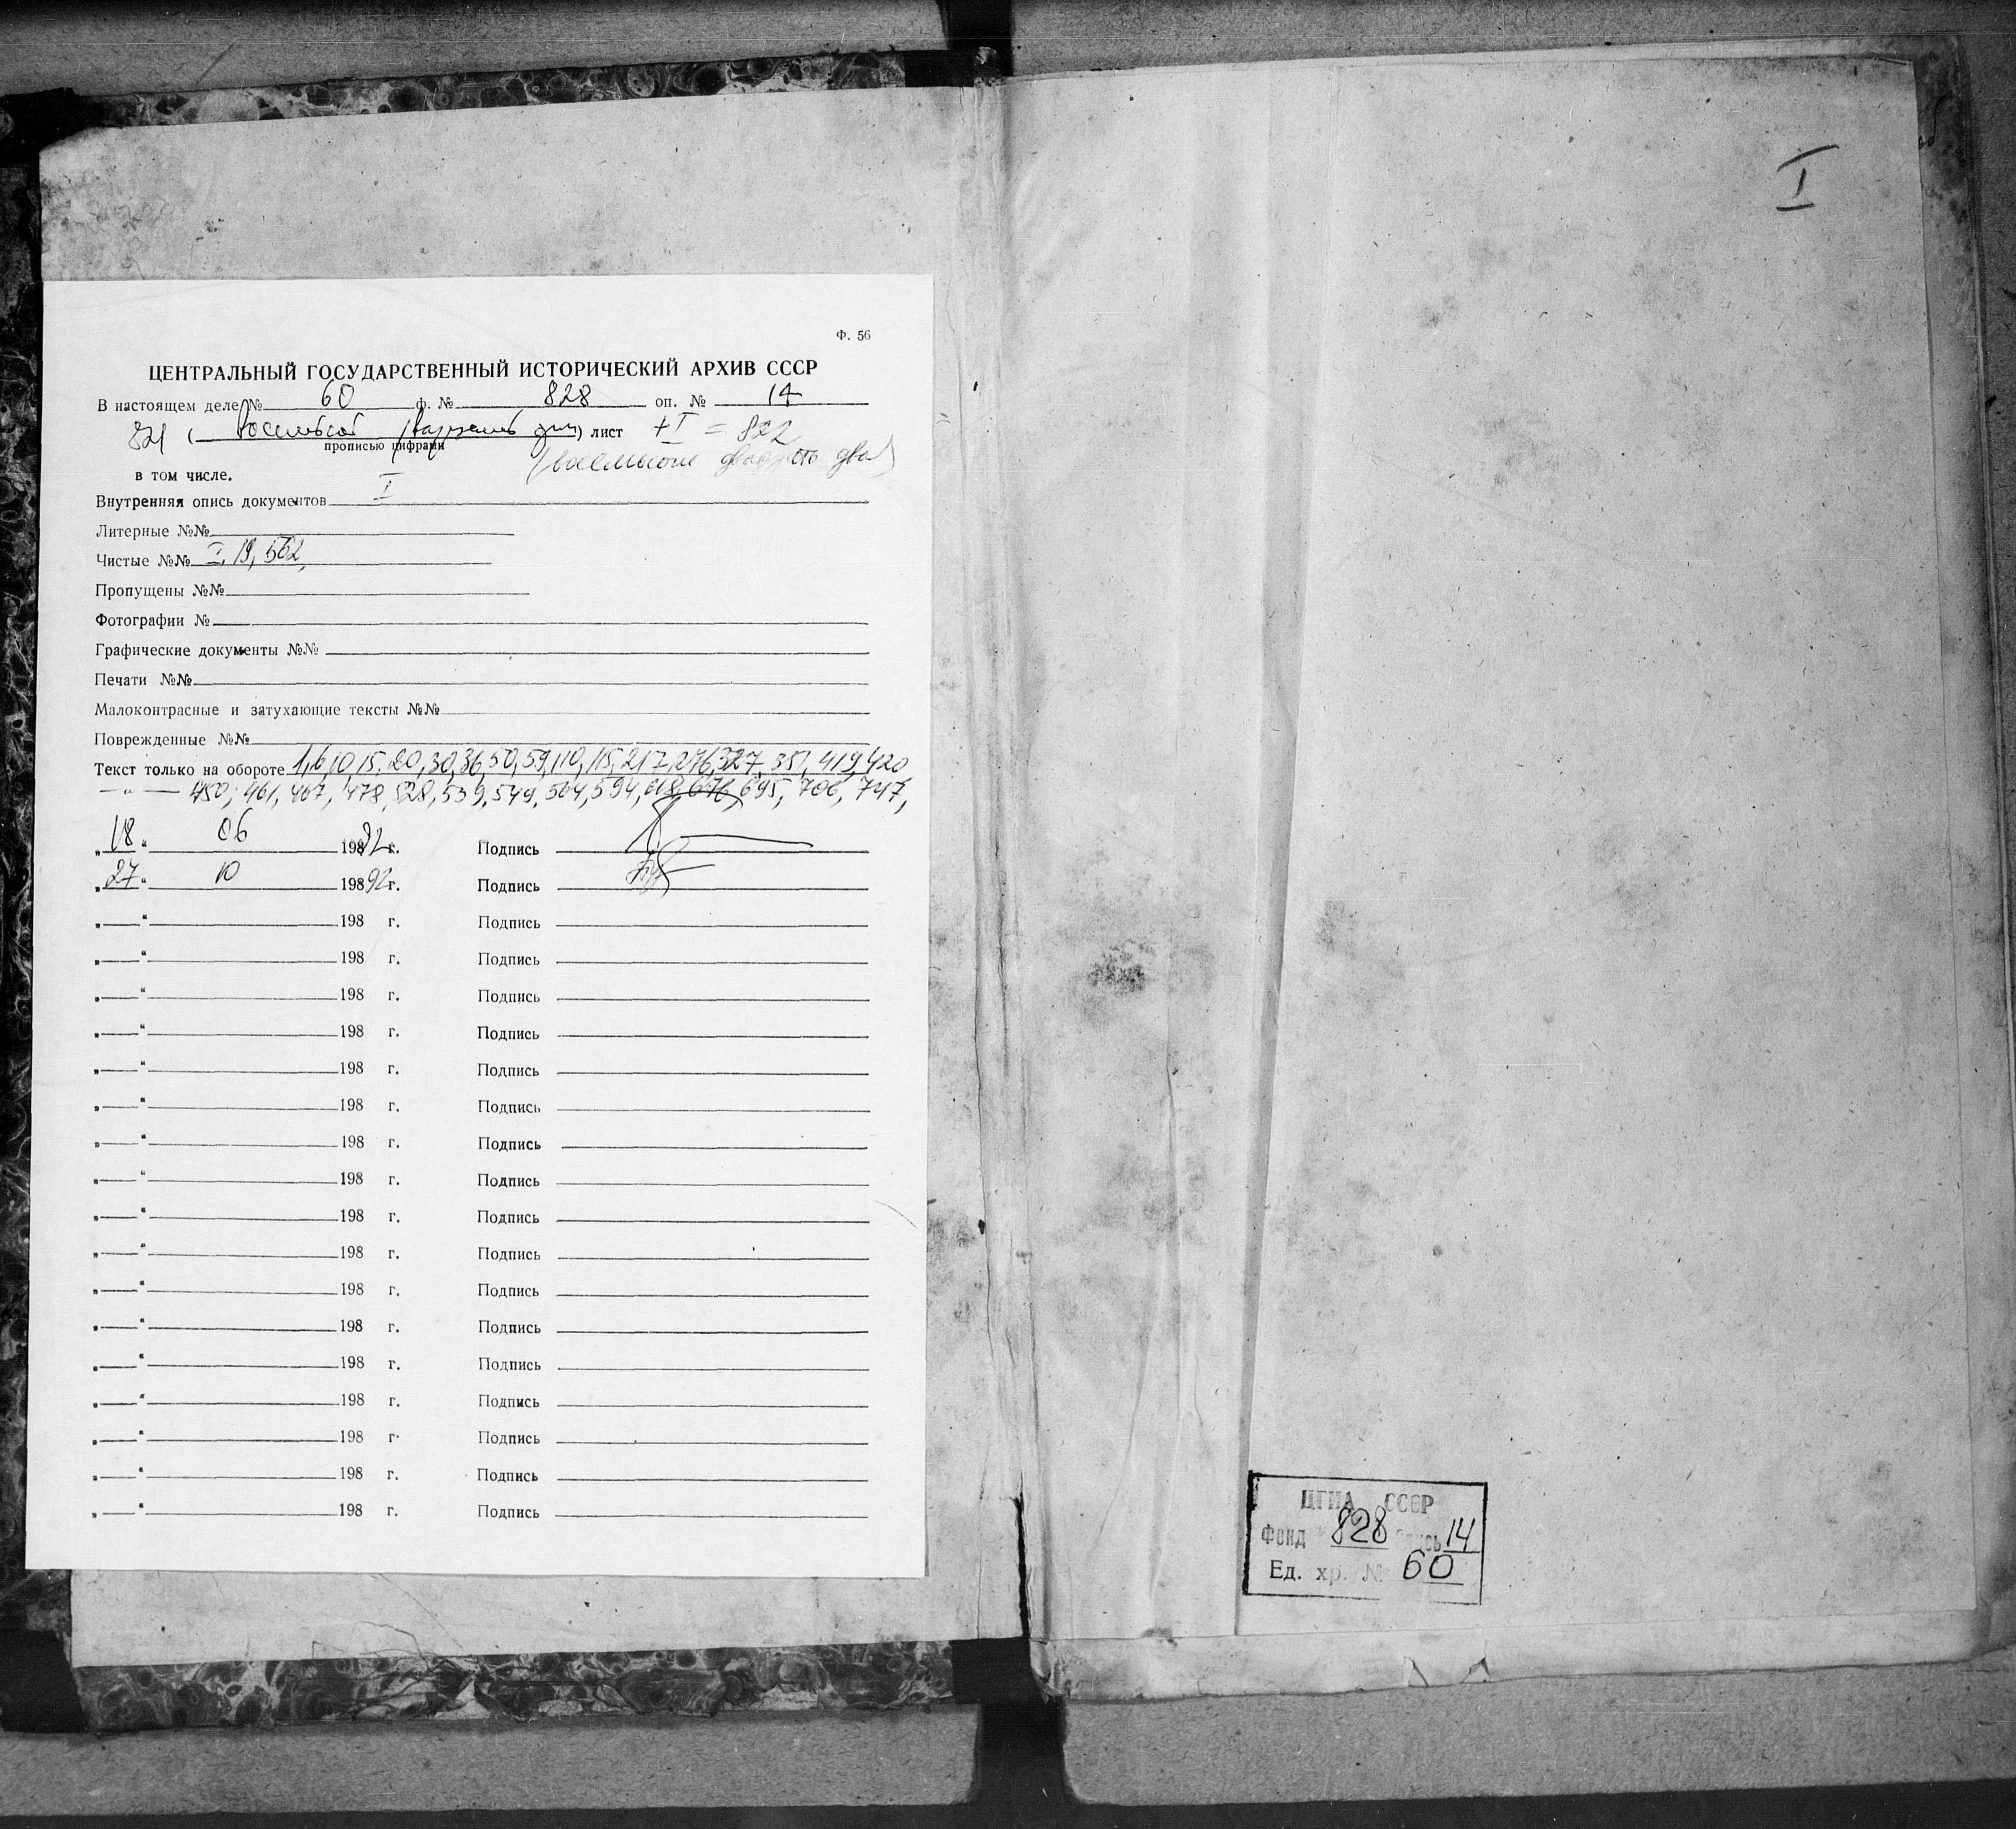 Ф. 56
ЦЕНТРАЛЬНЫЙ ГОСУДАРСТВЕННЫЙ ИСТОРИЧЕСКИЙ АРХИВ СССР
В настоящем деле № 60 ф. № 828 оп. № 14
821 ( ) лист + I = 822
прописью цифрами
(восемьсот двадцать два)
в том числе.
Внутренняя опись документов I
Литерные №№
Чистые №№ I, 19, 562,
Пропущены №№
Фотографии №
Графические документы №№
Печати №№
Малоконтрасные и затухающие тексты №№
Поврежденные №№
Текст только на обороте 1, 6, 10, 15, 20, 30, 36, 50, 59, 110, 115, 217, 276, 327, 351, 419, 420
— " — 450, 461, 467, 478, 528, 539, 549, 564, 594, 618, 676, 695, 706, 747,
„ 18 “ 06 1992 г. Подпись
„ 27 “ 10 198 92 г. Подпись
„ “ 198 г. Подпись
„ “ 198 г. Подпись
„ “ 198 г. Подпись
„ “ 198 г. Подпись
„ “ 198 г. Подпись
„ “ 198 г. Подпись
„ “ 198 г. Подпись
„ “ 198 г. Подпись
„ “ 198 г. Подпись
„ “ 198 г. Подпись
„ “ 198 г. Подпись
„ “ 198 г. Подпись
„ “ 198 г. Подпись
„ “ 198 г. Подпись
„ “ 198 г. Подпись
„ “ 198 г. Подпись
„ “ 198 г. Подпись
I
ЦГИА СССР
Фонд 828 опись 14
Ед. хр. № 60